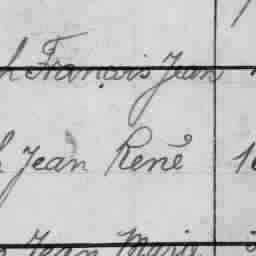 h François Jean
h Jean René 16
Jean Marie